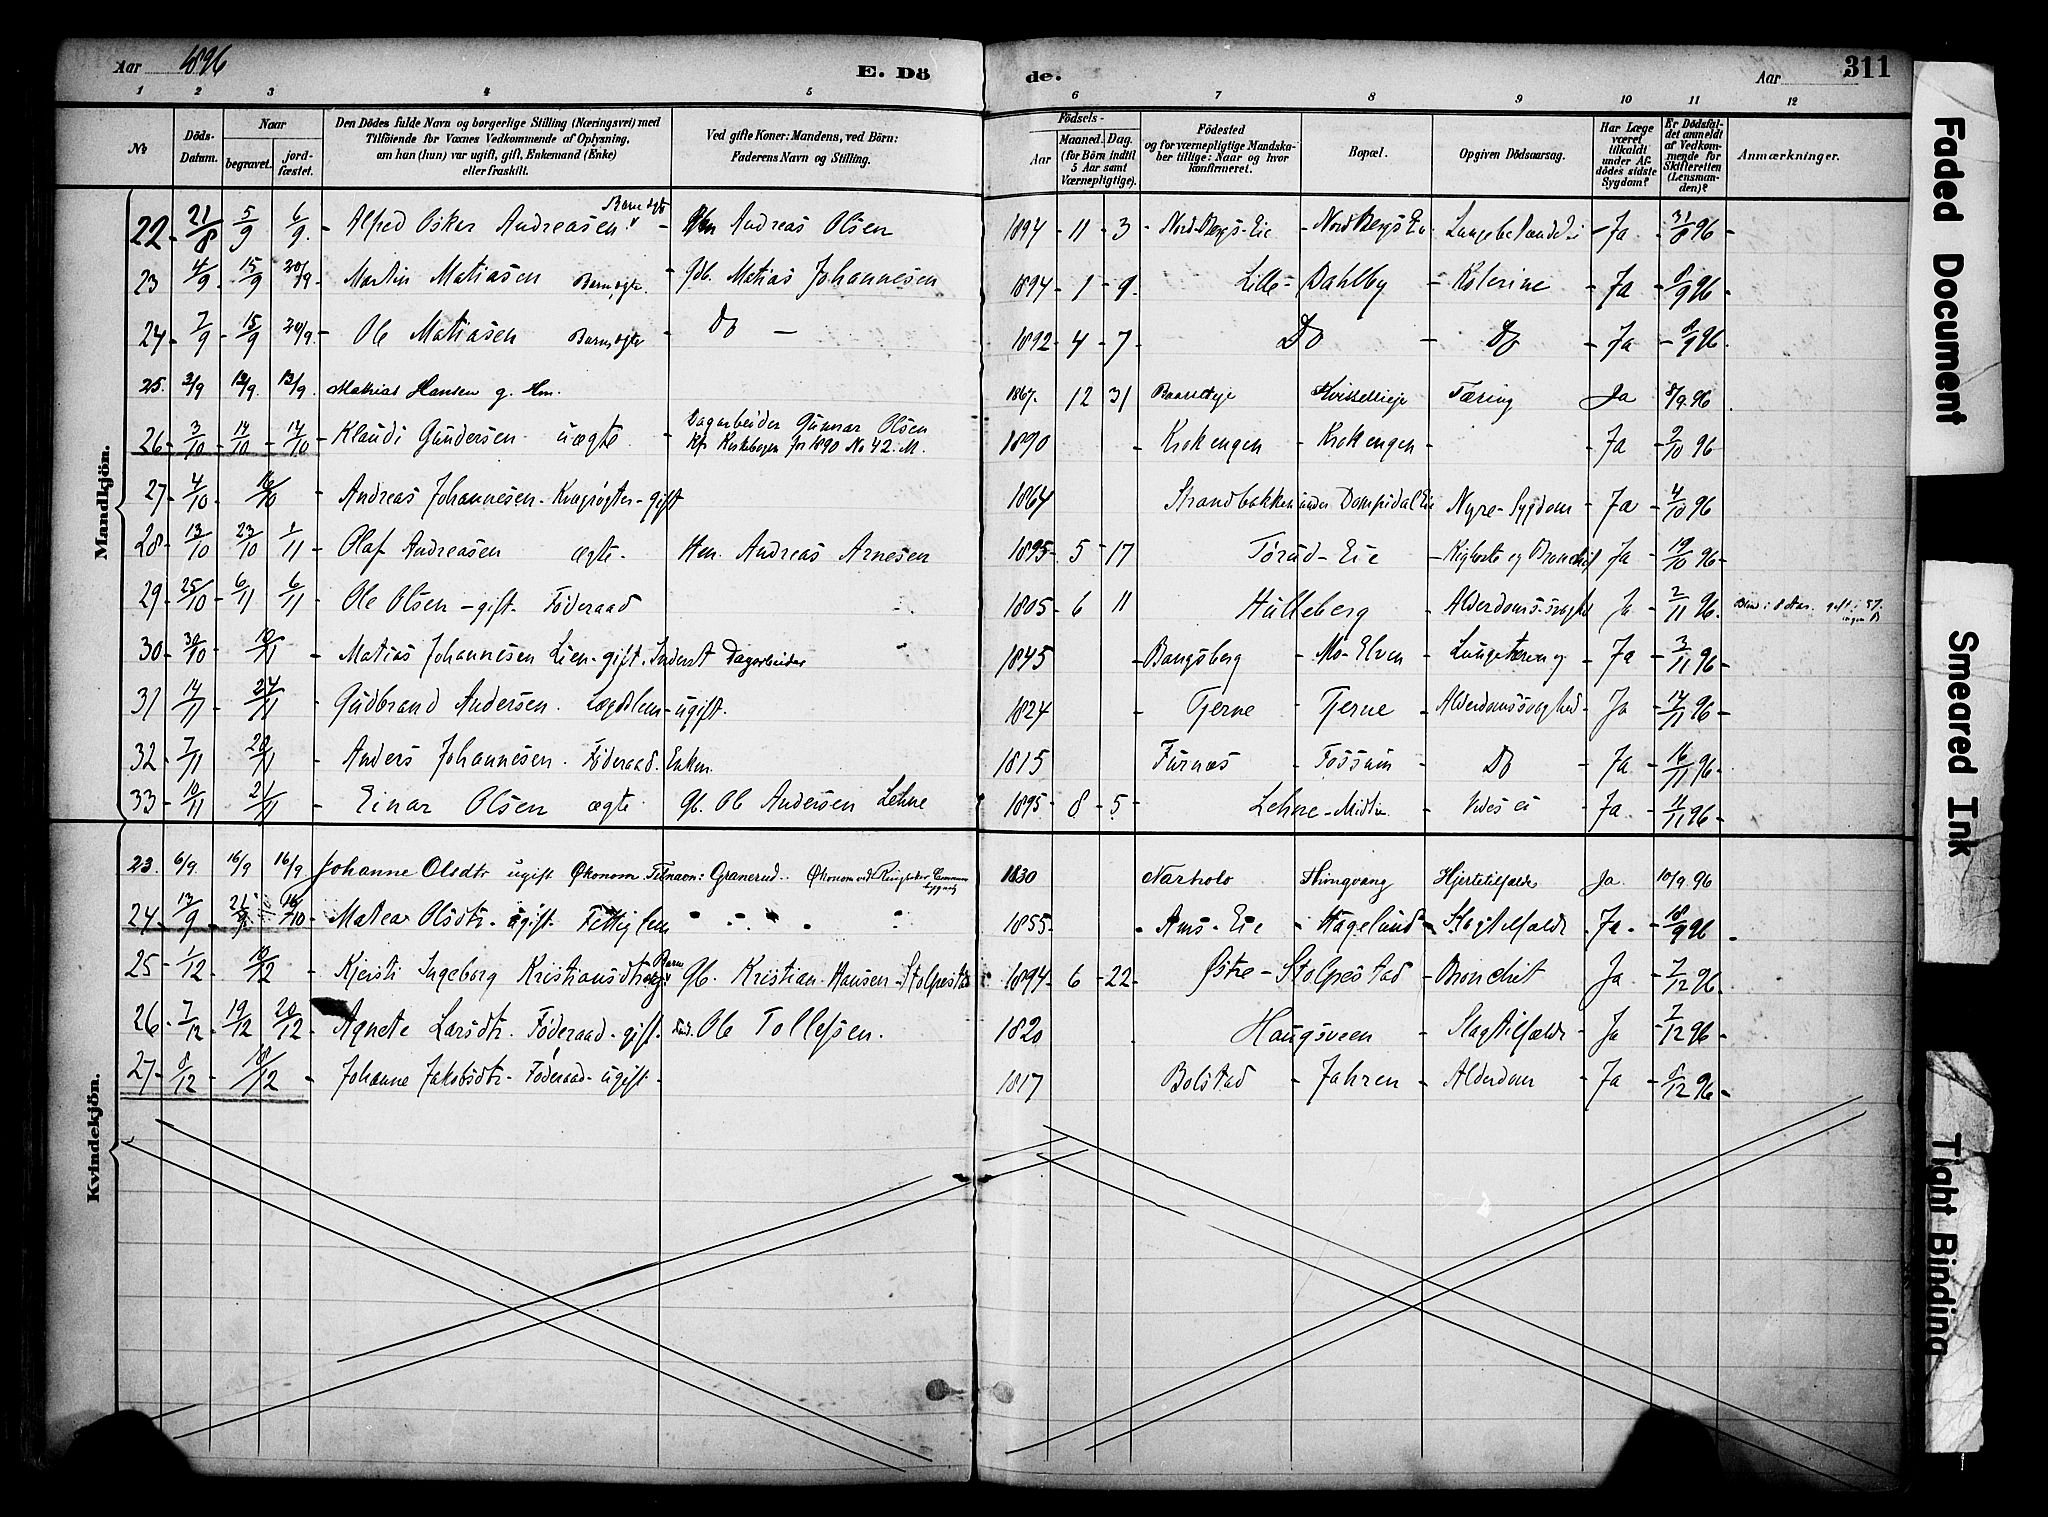 Aar 1896 E. Dö de. Aar 311
1 2 3 4 5 6 7 8 9 10 11 12
No Döds-Datum. Naar begravet. jord-fæstet. Den Dödes fulde Navn og borgerlige Stilling (Næringsvei) med Tilföiende for Voxnes Vedkommende af Oplysning, om han (hun) var ugift, gift, Enkemand (Enke) eller fraskilt. Ved gifte Koner: Mandens, ved Börn: Faderens Navn og Stilling. Födsels- Aar Maaned. Dag. (for Börn indtil 5 Aar samt Værnepligtige). Födested og for værnepligtige Mandska-ber tillige: Naar og hvor konfirmeret. Bopæl. Opgiven Dödsaarsag. Har Læge været tilkaldt under Af-dödes sidste Sygdom? Er Dödsfal-det anmeldt af Vedkom-mende for Skifteretten (Lensman-den)? Anmærkninger.
Mandkjön.
22 21/8 5/9 6/9 Alfred Oskar Andreasen Barn ægte Andreas Olsen 1894 11 3 Nord-Bergs-Eie Nord Bergs Eie Ja 31/8 96
23 4/9 15/9 20/9 Martin Matiasen Barn ægte Gdb. Matias Johannesen 1894 1 9 Lille-Dahlby Kolerine Ja 8/9 96
24 7/9 15/9 20/9 Ole Matiasen Barn ægte Do 1892 4 7 Do Do Ja 8/9 96
25. 3/9 12/9 13/9 Mathias Hansen g. Hm. 1867. 12 31 Tæring Ja 8/9 96
26 3/10 14/10 14/10 Klaudi Gundersen uægte Dagarbeider Gunnar Olsen Kfr Kirkebogen for 1890 No 42. M. 1890 Krokengen Krokengen Ja 9/10 96
27 4/10 16/10 Andreas Johannesen gift 1864 Strandbakken under Dompidal Eie Nyre-Sygdom Ja 4/10 96
28 13/10 23/10 1/11 Olaf Andreasen ægte. Hm. Andreas Arnesen 1895 5 17 Tørud-Eie Kighoste og Bronchit Ja 19/10 96
29 25/10 6/11 6/11 Ole Olsen gift Føderaad 1805 6 11 Hulleberg Alderdomssvaghed Ja 2/11 96 Blind i 8 Aar. gift i 57.
30 30/10 10/11 Matias Johannesen Lien gift. Inderst Dagarbeider 1845 Bangsberg Mo-Elven Lungetæring Ja 3/11 96
31 14/11 24/11 Gudbrand Andersen. Lægdslem ugift. 1824 Tjerne Tjerne Alderdomssvaghed Ja 14/11 96
32 7/11 20/11 Anders Johannesen. Føderaad. Enkem. 1815 Furnæs Fossum Do Ja 16/11 96
33 10/11 21/11 Einar Olsen ægte Gb. Ole Andersen Lehne 1895 8 5 Lehne-Midtre Vides ei Ja 11/11 96
Kvindekjön.
23. 6/9 16/9 16/9 Johanne Olsdtr ugift Økonom. Tilnavn: Granerud. Økonom ved Ringsaker 1830 Narholo Hjertetilfælde Ja. 10/9 96
24 13/9 21/9 Matea Olsdtr. ugift. Fattiglem 1855 Ams-Eie Hagelund Slagtilfælde Ja 18/9 96
25 1/12 10/12 Kjersti Ingeborg Kristiansdtr Barn ægte Gb. Kristian Hansen Stolpestad 1894 6 22 Østre-Stolpestad Bronchit Ja 7/12 96
26 7/12 19/12 20/12 Agnete Larsdtr. Føderaad gift Ole Tollefsen. 1820 Haugsveen Slagtilfælde Ja 7/12 96
27 8/12 18/12 Johanne Jakobsdtr. Føderaad ugift 1817 Bolstad Jahren Alderdom Ja 8/12 96
Faded Document
Smeared Ink
Tight Binding